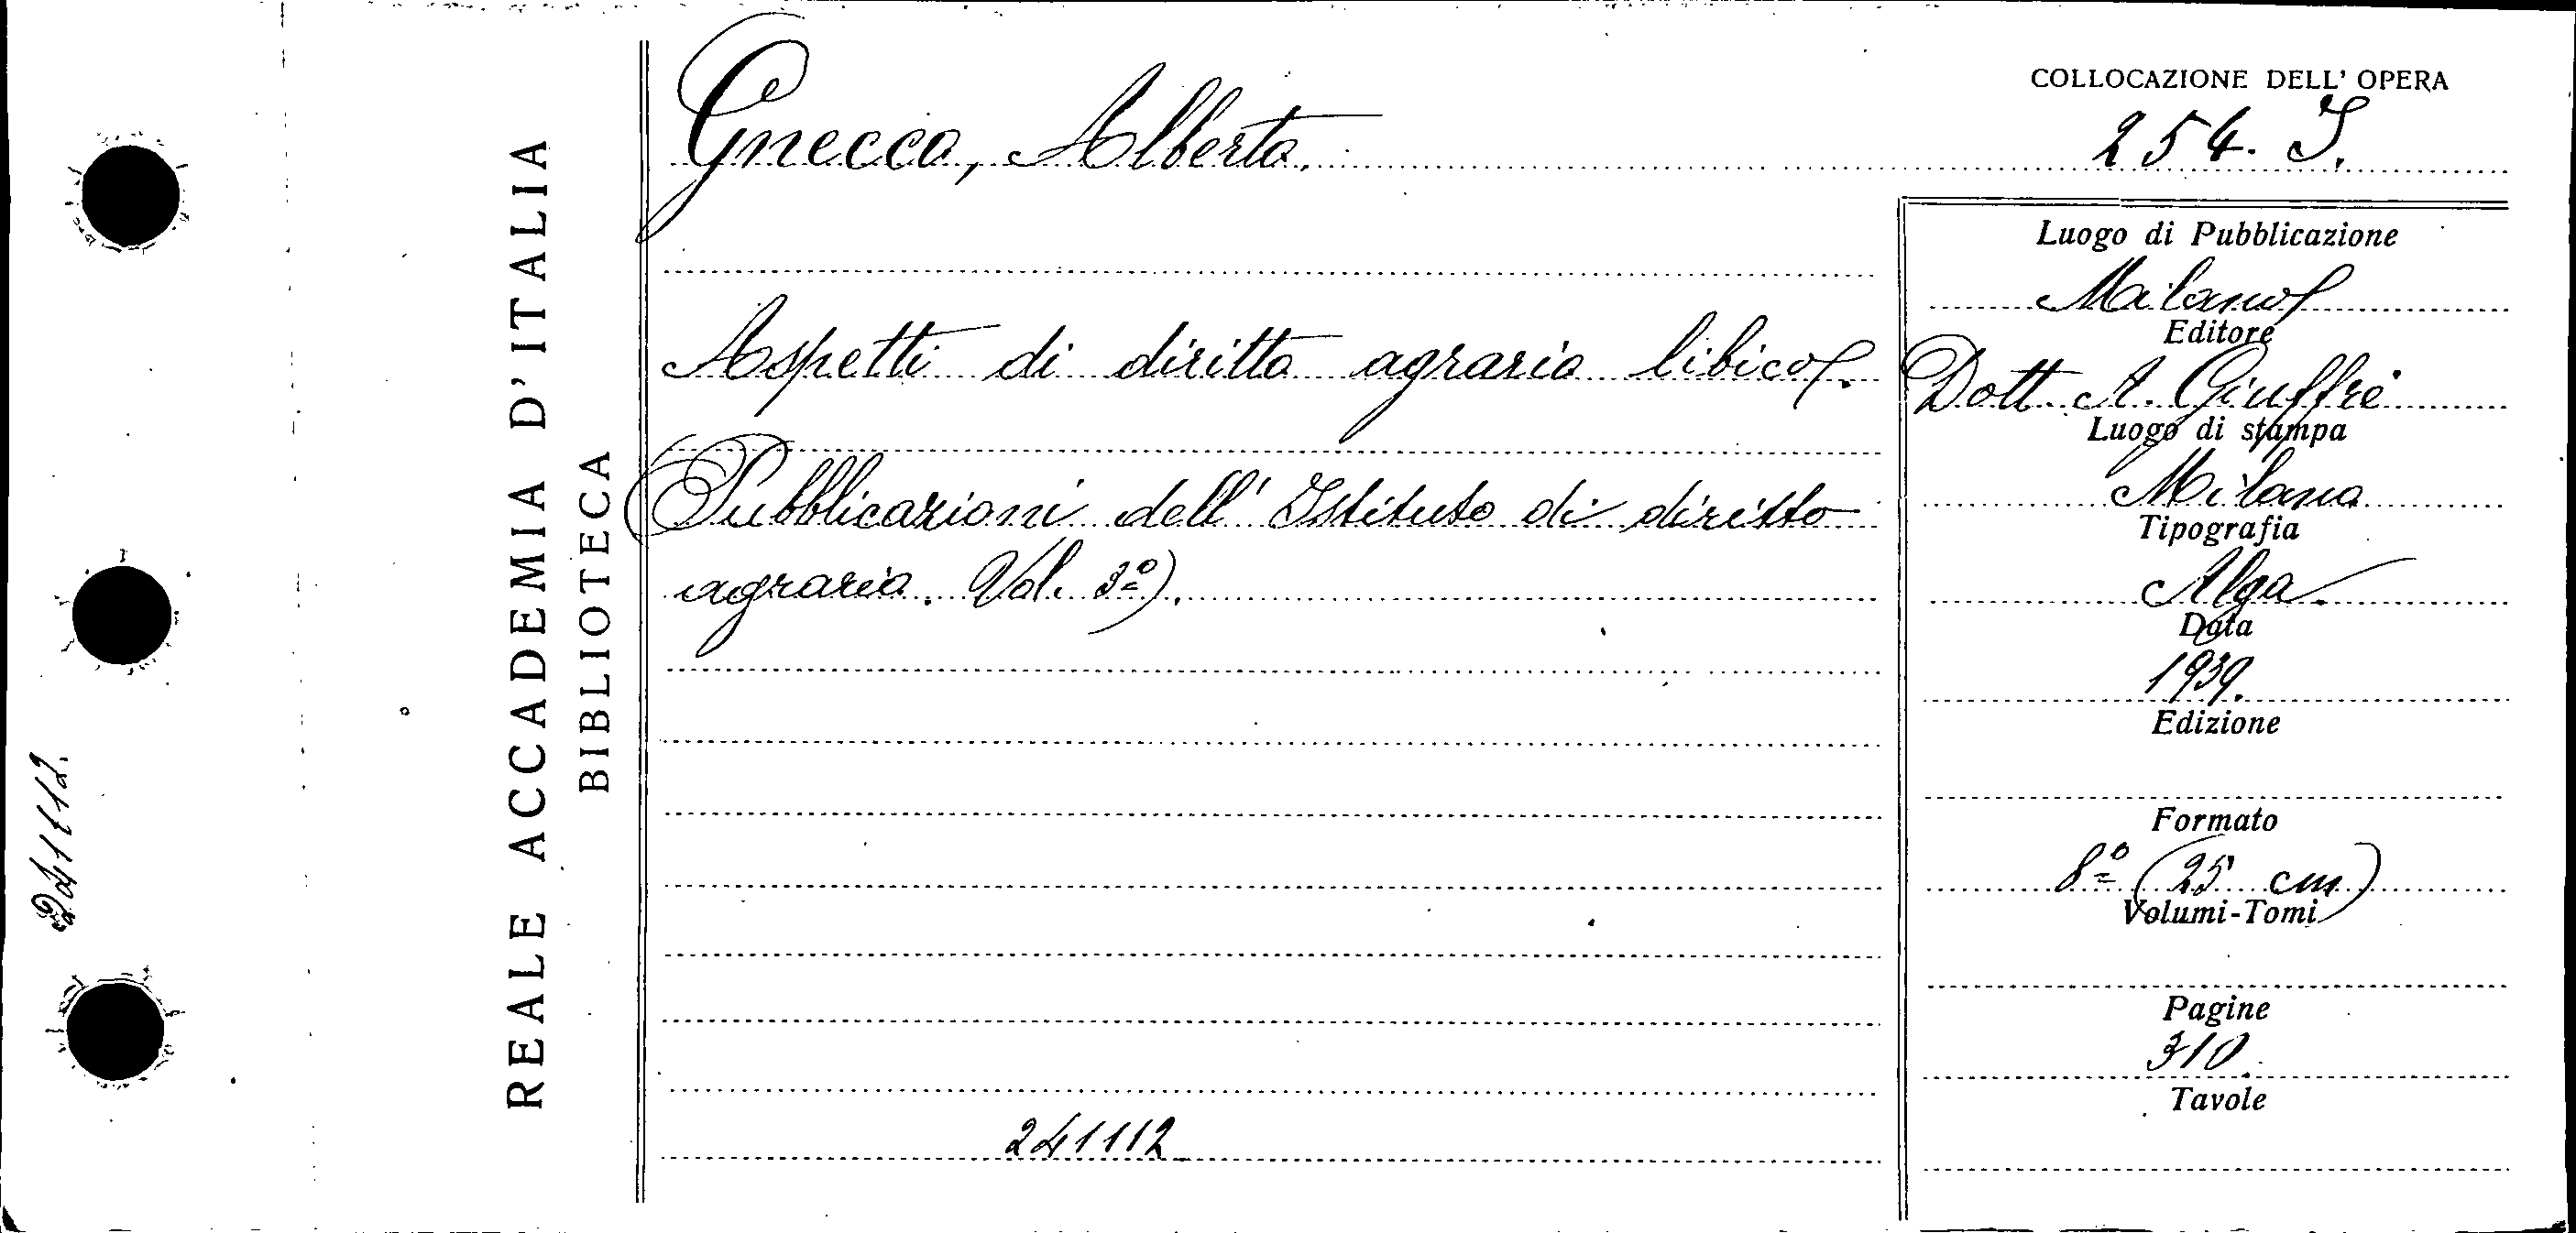 COLLOCAZIONE DELL' OPERA
Gnecco, Alberto.
254. I.
Aspetti di diritto agrario libico.
(Pubblicazioni dell' Istituto di diritto
agrario. Vol. 3º).
241112
Luogo di Pubblicazione
Milano
Editore
Dott. A. Giuffrè
Luogo di stampa
Milano
Tipografia
Alga.
Data
1939.
Edizione
Formato
8º (25 cm)
Volumi-Tomi
Pagine
310.
Tavole
REALE ACCADEMIA D'ITALIA
BIBLIOTECA
241112.